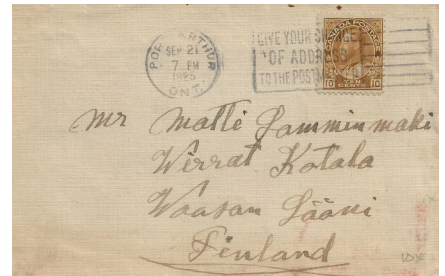 PORT ARTHUR
SEP 21
7 PM
1925
ONT.
GIVE YOUR CHANGE
OF ADDRESS
TO THE POSTMAN
CANADA POSTAGE
10 TEN CENTS 10
Mr Matti Lamminmaki
Wirrat Kotala
Waasan Lääni
Finland